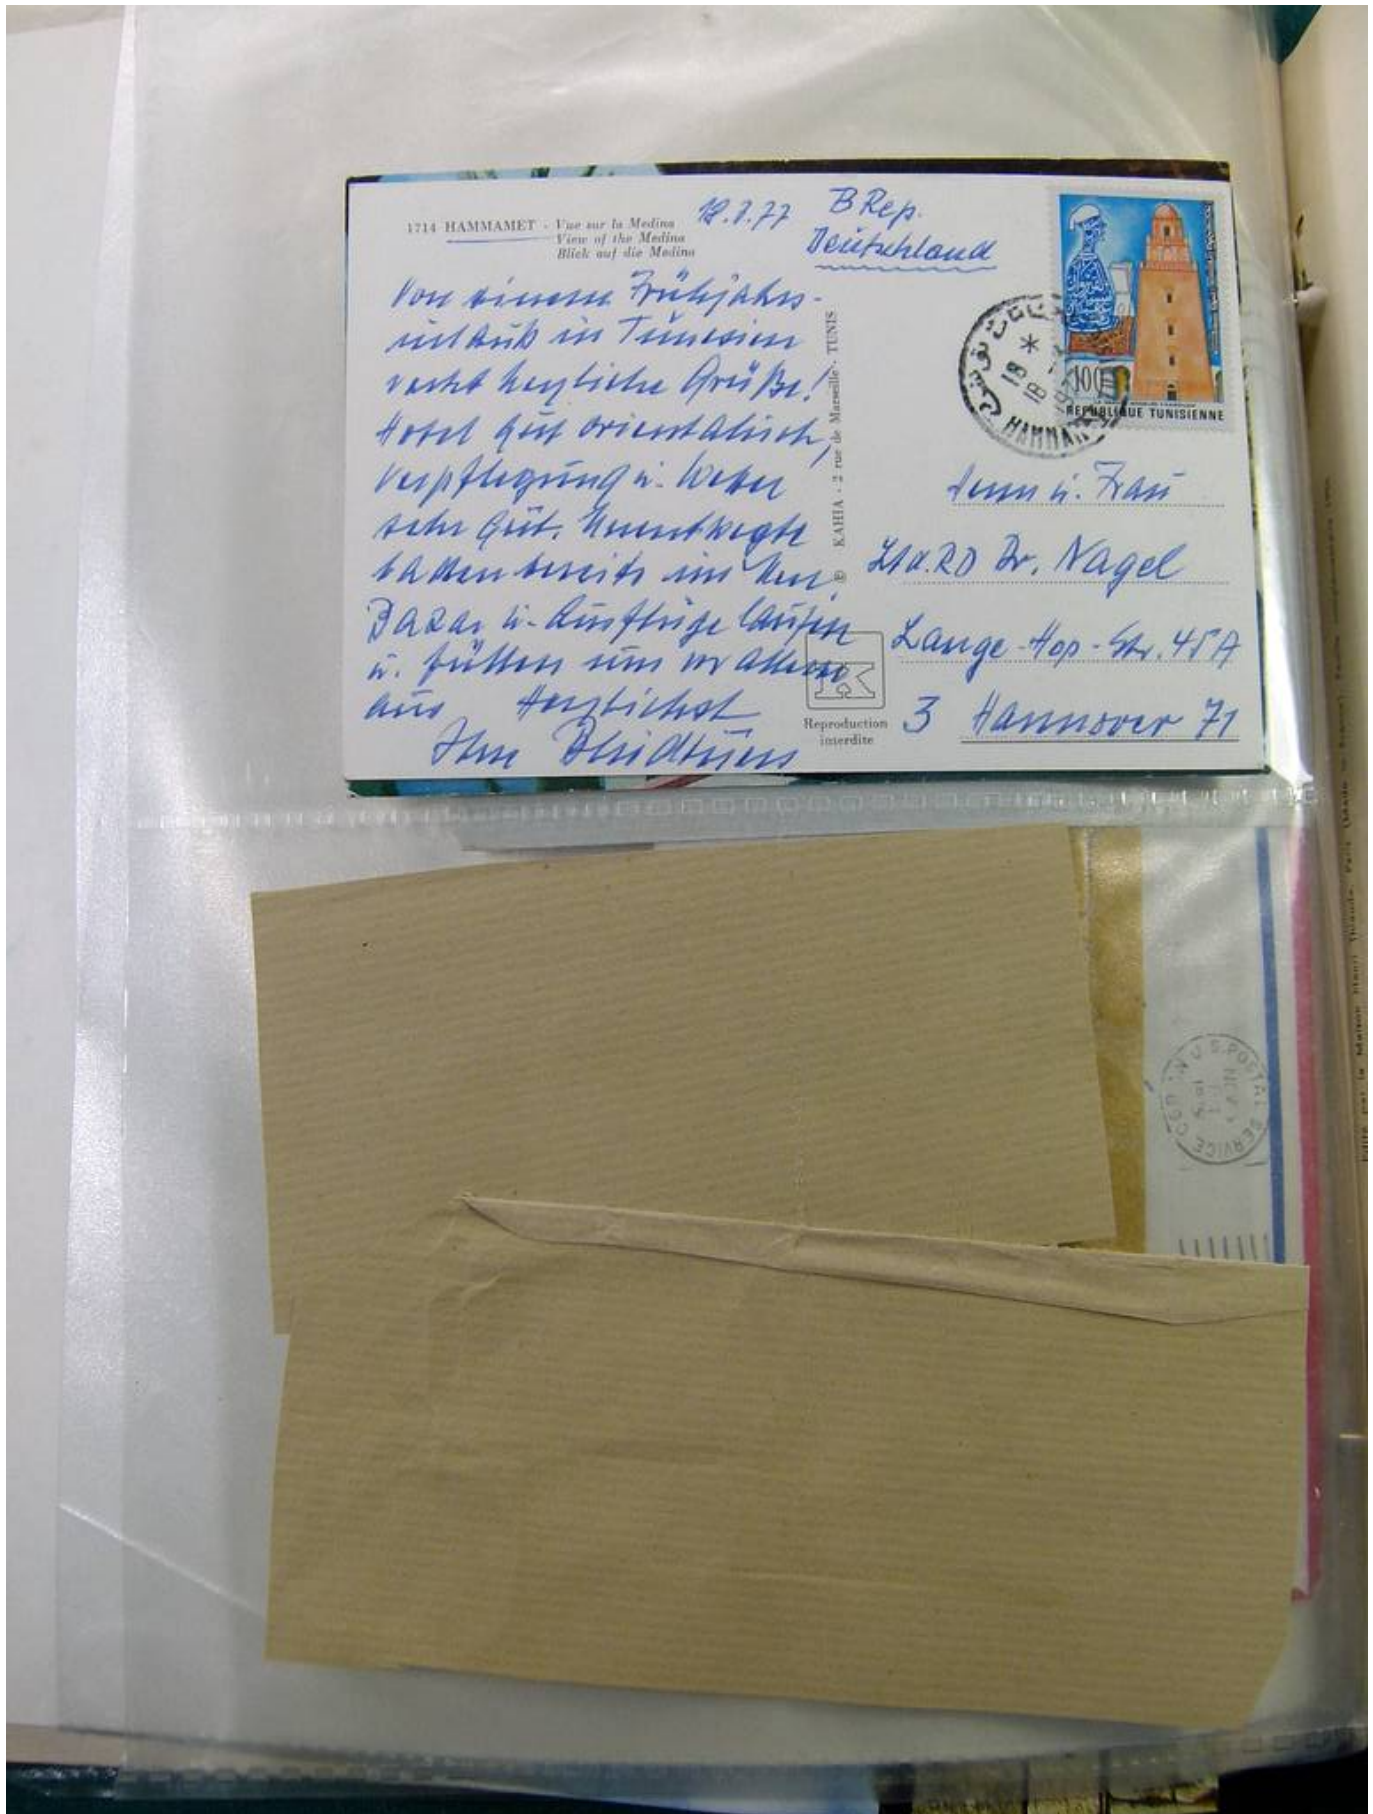 1714 HAMMAMET - Vue sur la Medina
View of the Medina
Blick auf die Medina
18.3.77
B Rep.
Deutschland
Von einem Frühjahrs-
urlaub in Tunesien
recht herzliche Grüße!
Hotel gut orientalisch,
Verpflegung u. Wetter
sehr gut.
baden bereits im
Bazar u. Ausflüge laufen
u. füllen uns vor allem
aus Herzlichst
Ihre
© KAHIA - 2 rue de Marseille - TUNIS
Reproduction
interdite
100
REPUBLIQUE TUNISIENNE
18 *
18
HAMMAM
Herrn u. Frau
Ltd.RD Dr. Nagel
Lange-Hop-Str. 45A
3 Hannover 71
U.S. POSTAL SERVICE